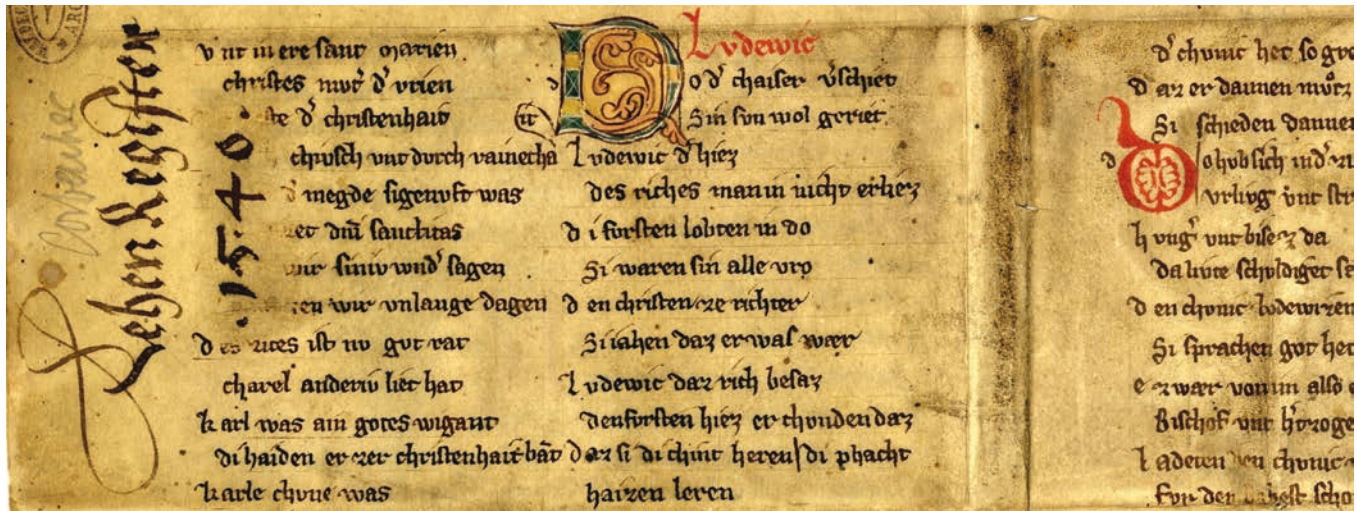 Lehen Register
.1540.
vnt in ere sant marien
christes mvt' d' vrien
te d' christenhait
chvsch vnt dvrch raine
megde sigenvft was
et dni sanctitas
wir svln wnd' sagen
en wir vnlange dagen
des rites ist nv gvt rat
charel anderiv liet hat
karl was ain gotes wigant
di haiden er zer christenhait bāt
karle chvne was
Lvdewic
do d' chaiser v'schiet
Sin svn wol geriet
Lvdewic d' hiez
des riches man in nicht erliez
di fvrsten lobten in do
Si waren sin alle vro
den christen ze richter
Si iahen daz er was wær
Lvdewic daz rich besaz
den fvrsten hiez er chvnden daz
daz si di chint heren di phacht
haizen leren
d' chvnic het so gro
daz er dannen mvͦz
Si schieden dannen
do hvb sich ind' ri
vrlivg vnt str
hvng' vnt bisez da
da livte schvldiget se
den chvnic lodewizen
Si sprachen got het
ez wær von im also
Bischof vnt h'zoge
ladeten den chvnic
fvr den babest scho